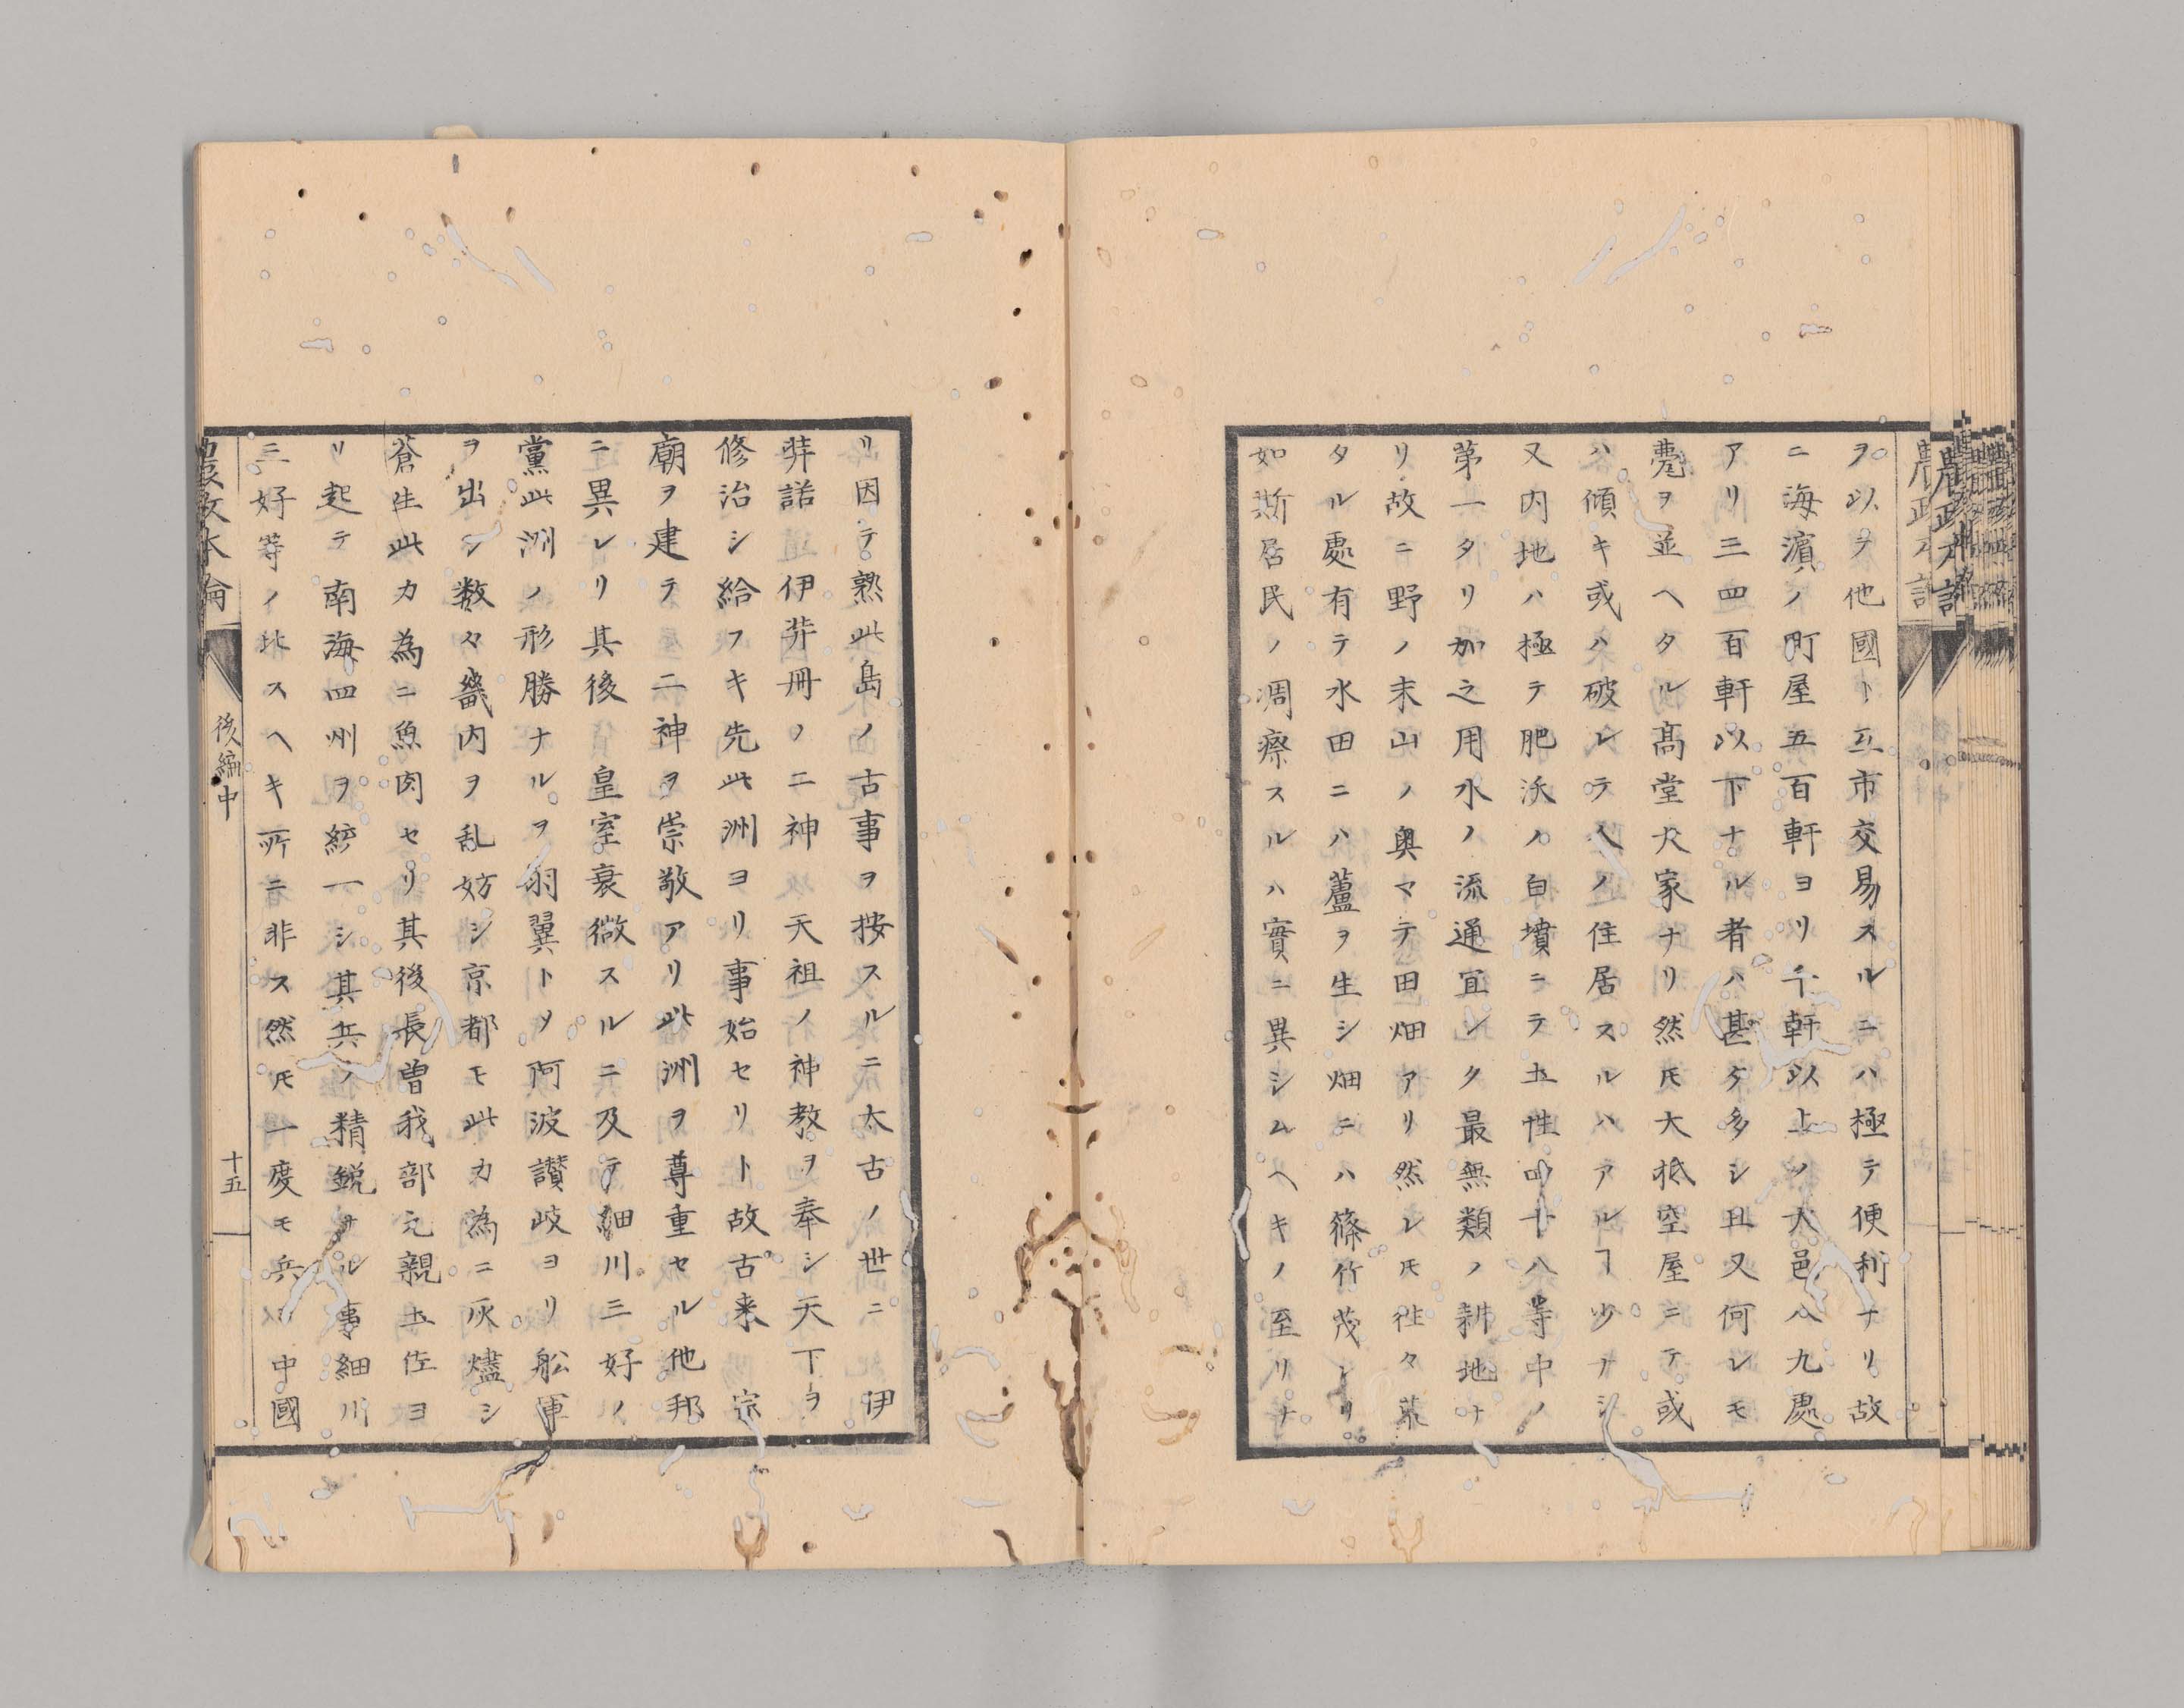 ヲ以テ他國ト互市交易スルニハ極テ便利ナリ故
ニ海濱ノ町屋五百軒ヨリ千軒以上ノ大邑八九處
アリ三四百軒以下ナル者ハ甚タ多シ且又何レモ
甍ヲ並ヘタル髙堂大家ナリ然𪜈大抵空屋ニテ或
ハ傾キ或ハ破レテ人ノ住居スルハアルヿ少ナシ
又内地ハ極テ肥沃ノ白墳ニテ土性四十八等中ノ
第一タリ加之用水ノ流通宜シク最無類ノ耕地ナ
リ故ニ野ノ末山ノ奥マテ田畑アリ然レ𪜈徃々荒
タル處有テ水田ニハ蘆ヲ生シ畑ニハ篠竹茂レリ
如斯居民ノ凋瘵スルハ實ニ異シムヘキノ至リナ
リ因テ熟此島ノ古事ヲ按スルニ太古ノ世ニ 伊
弉諾伊弉冊ノ二神 天祖ノ神教ヲ奉シ天下ヲ
修治シ給フキ先此洲ヨリ事始セリト故古来 宗
廟ヲ建テ二神ヲ崇敬アリ此洲ヲ尊重セル他邦
ニ異レリ其後 皇室衰微スルニ及テ細川三好ノ
黨此洲ノ形勝ナルヲ羽翼トメ阿波讃岐ヨリ舩軍
ヲ出シ数々畿内ヲ乱妨シ京都モ此カ為ニ灰燼シ
蒼生此カ為ニ魚肉セリ其後長曽我部元親土佐ヨ
リ起テ南海四州ヲ統一シ其兵ノ精鋭ナル事細川
三好等ノ比スヘキ所ニ非ス然𪜈一度モ兵ヲ中國
農政本論
後編中
十五